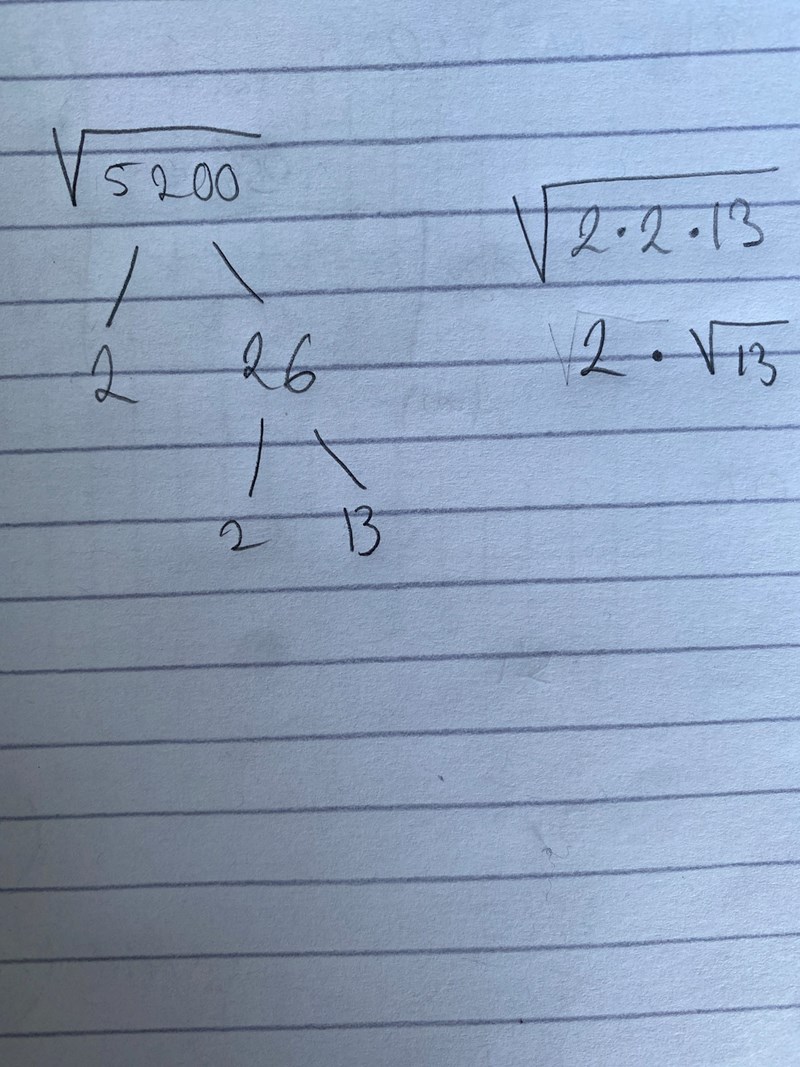 √5200
2 26
2 13
√2·2·13
2·√13